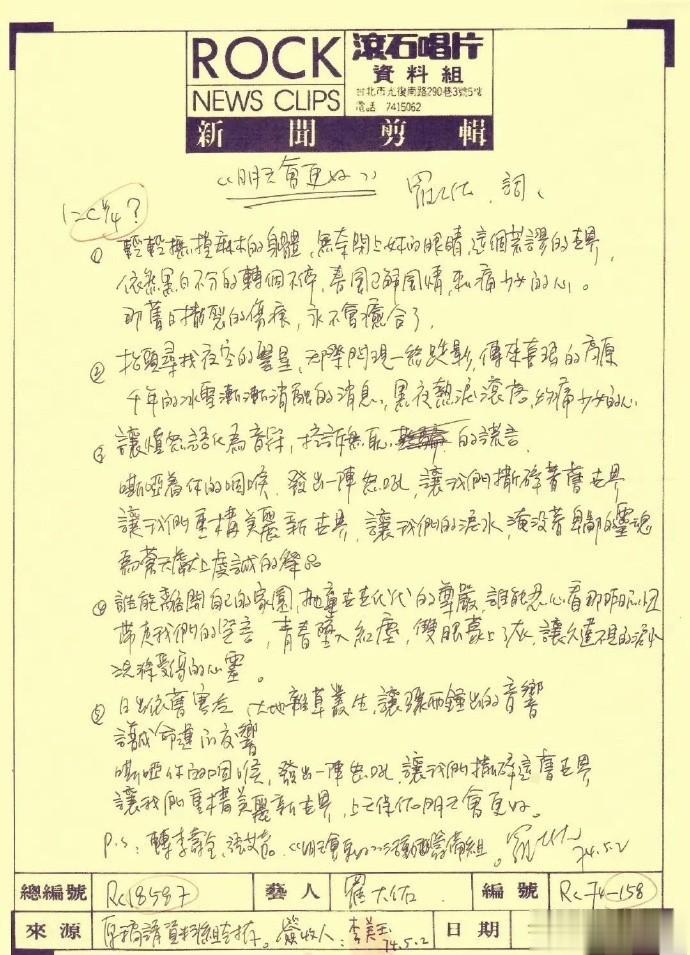 ROCK
NEWS CLIPS
滾石唱片
資料組
台北市光復南路290巷3號5樓
電話 7415062
新聞剪輯
《明天會更好》 羅大佑 詞、
12C 1/4?
① 輕輕搖撞麻木的身體,無奈閉上妳的眼睛,這個荒謬的世界,
依然黑白不分的轉個不停,春風不解風情,刺痛少女的心。
那舊日撕裂的傷痕,永不會癒合了,
② 抬頭尋找夜空的繁星,天際閃現一絲蹤影,傳來喜 的高原
千年的冰雪漸漸消融的消息,黑夜熱淚滾落 灼痛少女的心
③ 讓憤怒語化為音符,控訴無恥 的謊言
嘶啞着你的咽喉 發出一陣怒吼,讓我們撕碎舊世界
讓我們重構美麗新世界,讓我們的淚水,淹沒着卑鄙的靈魂
為蒼天獻上虔誠的祭品
④ 誰能離開自己的家園,拋棄世世代代的尊嚴,誰能忍心看那昨日
帶走我們的笑言,青春墜入紅塵,雙眼蒙上了灰,讓久違不見的淚水
洗滌受傷的心靈。
⑤ 日出依舊寒冷 大地雜草叢生,讓 鐘出的音響
譜成命運的反響
嘶啞你的咽喉,發出一陣怒吼 讓我們撕碎這舊世界
讓我們重構美麗新世界,上天保佑明天會更好。
P.S:轉李壽全、張艾嘉。《明天會更好》 籌備組。羅大佑 74.5.2
總編號 Rc18587 藝人 羅大佑 編號 Rc-74-158
來源 原稿請資料組封存。簽收人:李美玉 74.5.2 日期